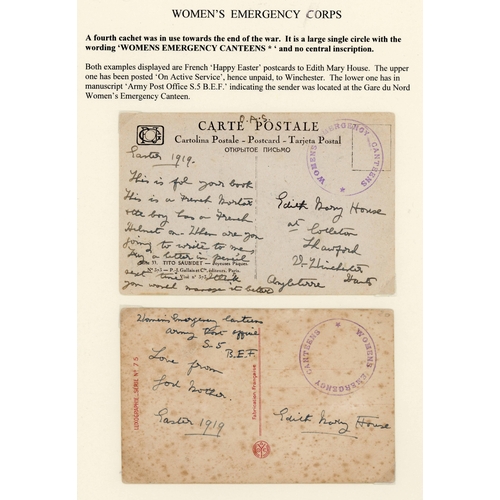 WOMEN'S EMERGENCY CORPS
A fourth cachet was in use towards the end of the war. It is a large single circle with the
wording 'WOMENS EMERGENCY CANTEENS * ' and no central inscription.
Both examples displayed are French 'Happy Easter' postcards to Edith Mary House. The upper
one has been posted 'On Active Service', hence unpaid, to Winchester. The lower one has in
manuscript 'Army Post Office S.5 B.E.F.' indicating the sender was located at the Gare du Nord
Women's Emergency Canteen.
O.A.S.
CARTE POSTALE
Cartolina Postale - Postcard - Tarjeta Postal
ОТКРЫТОЕ ПИСЬМО
WOMENS EMERGENCY CANTEENS *
Easter 1919.
This is for your book
This is a French
boy has a French
Helmet on. When are you
going to write to me
Try a letter in pencil
next time. I think
you would manage it better
11. TITO SAUBIDET — Joyeuses Pâques
Edith Mary House
at
Winchester
Hants
Angleterre
Womens Emergency Canteens
Army Post Office
S.5
B.E.F.
Love from
God Mother.
Easter 1919
Fabrication Française
WOMENS EMERGENCY CANTEENS *
Edith Mary House